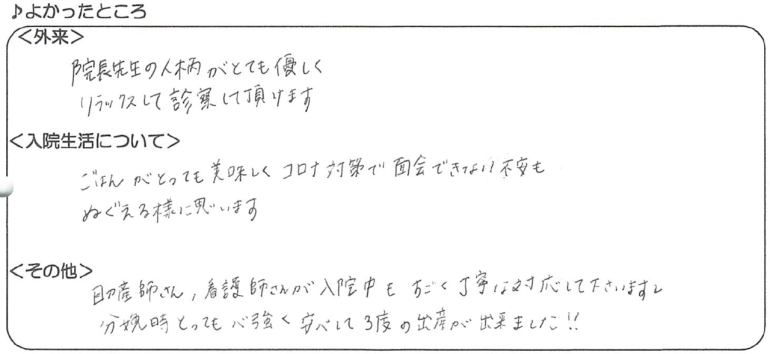 ♪よかったところ
＜外来＞
院長先生の人柄がとても優しく
リラックスして診察して頂けます
＜入院生活について＞
ごはんがとっても美味しくコロナ対策で面会できない不安も
ぬぐえる様に思います
＜その他＞
助産師さん,看護師さんが入院中もすごく丁寧な対応して下さいますし
分娩時とっても心強く安心して3度の出産が出来ました!!